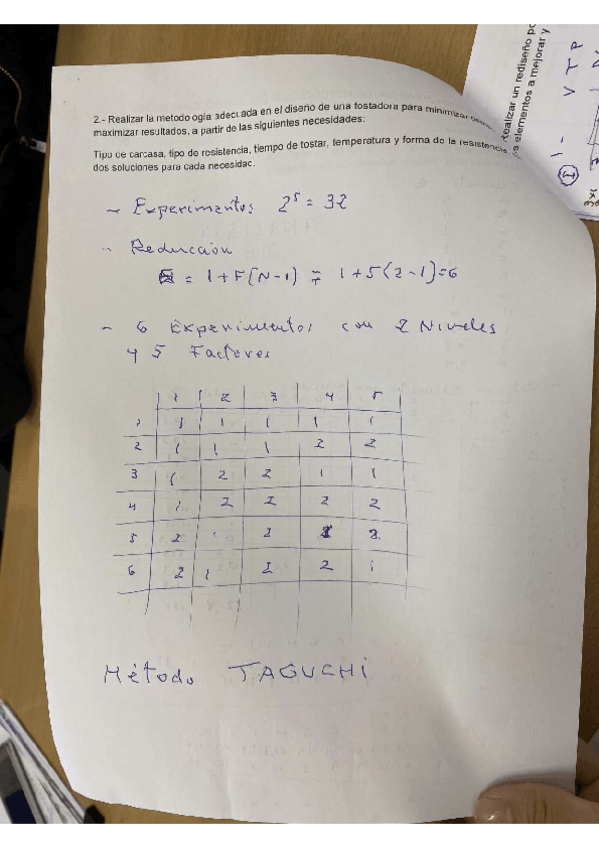 2.- Realizar la metodología adecuada en el diseño de una tostadora para minimizar
maximizar resultados, a partir de las siguientes necesidades:
Tipo de carcasa, tipo de resistencia, tiempo de tostar, temperatura y forma de la resistencia,
dos soluciones para cada necesidad.
- Experimentos 2^5 = 32
- Reducción
= 1+F(N-1) = 1+5(2-1)=6
- 6 Experimentos con 2 Niveles
y 5 Factores
1 2 3 4 5
1 1 1 1 1 1
2 1 1 1 2 2
3 1 2 2 1 1
4 1 2 2 2 2
5 2 1 2
6 2 1 2 2 1
Método TAGUCHI
Realizar un rediseño
elementos a mejorar y
1 - V T P